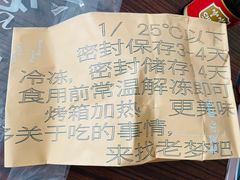 1/ 25℃以下
密封保存3-4天/
冷冻,密封储存14天/
食用前常温解冻即可
烤箱加热,更美味
多关于吃的事情,
来找老梦吧